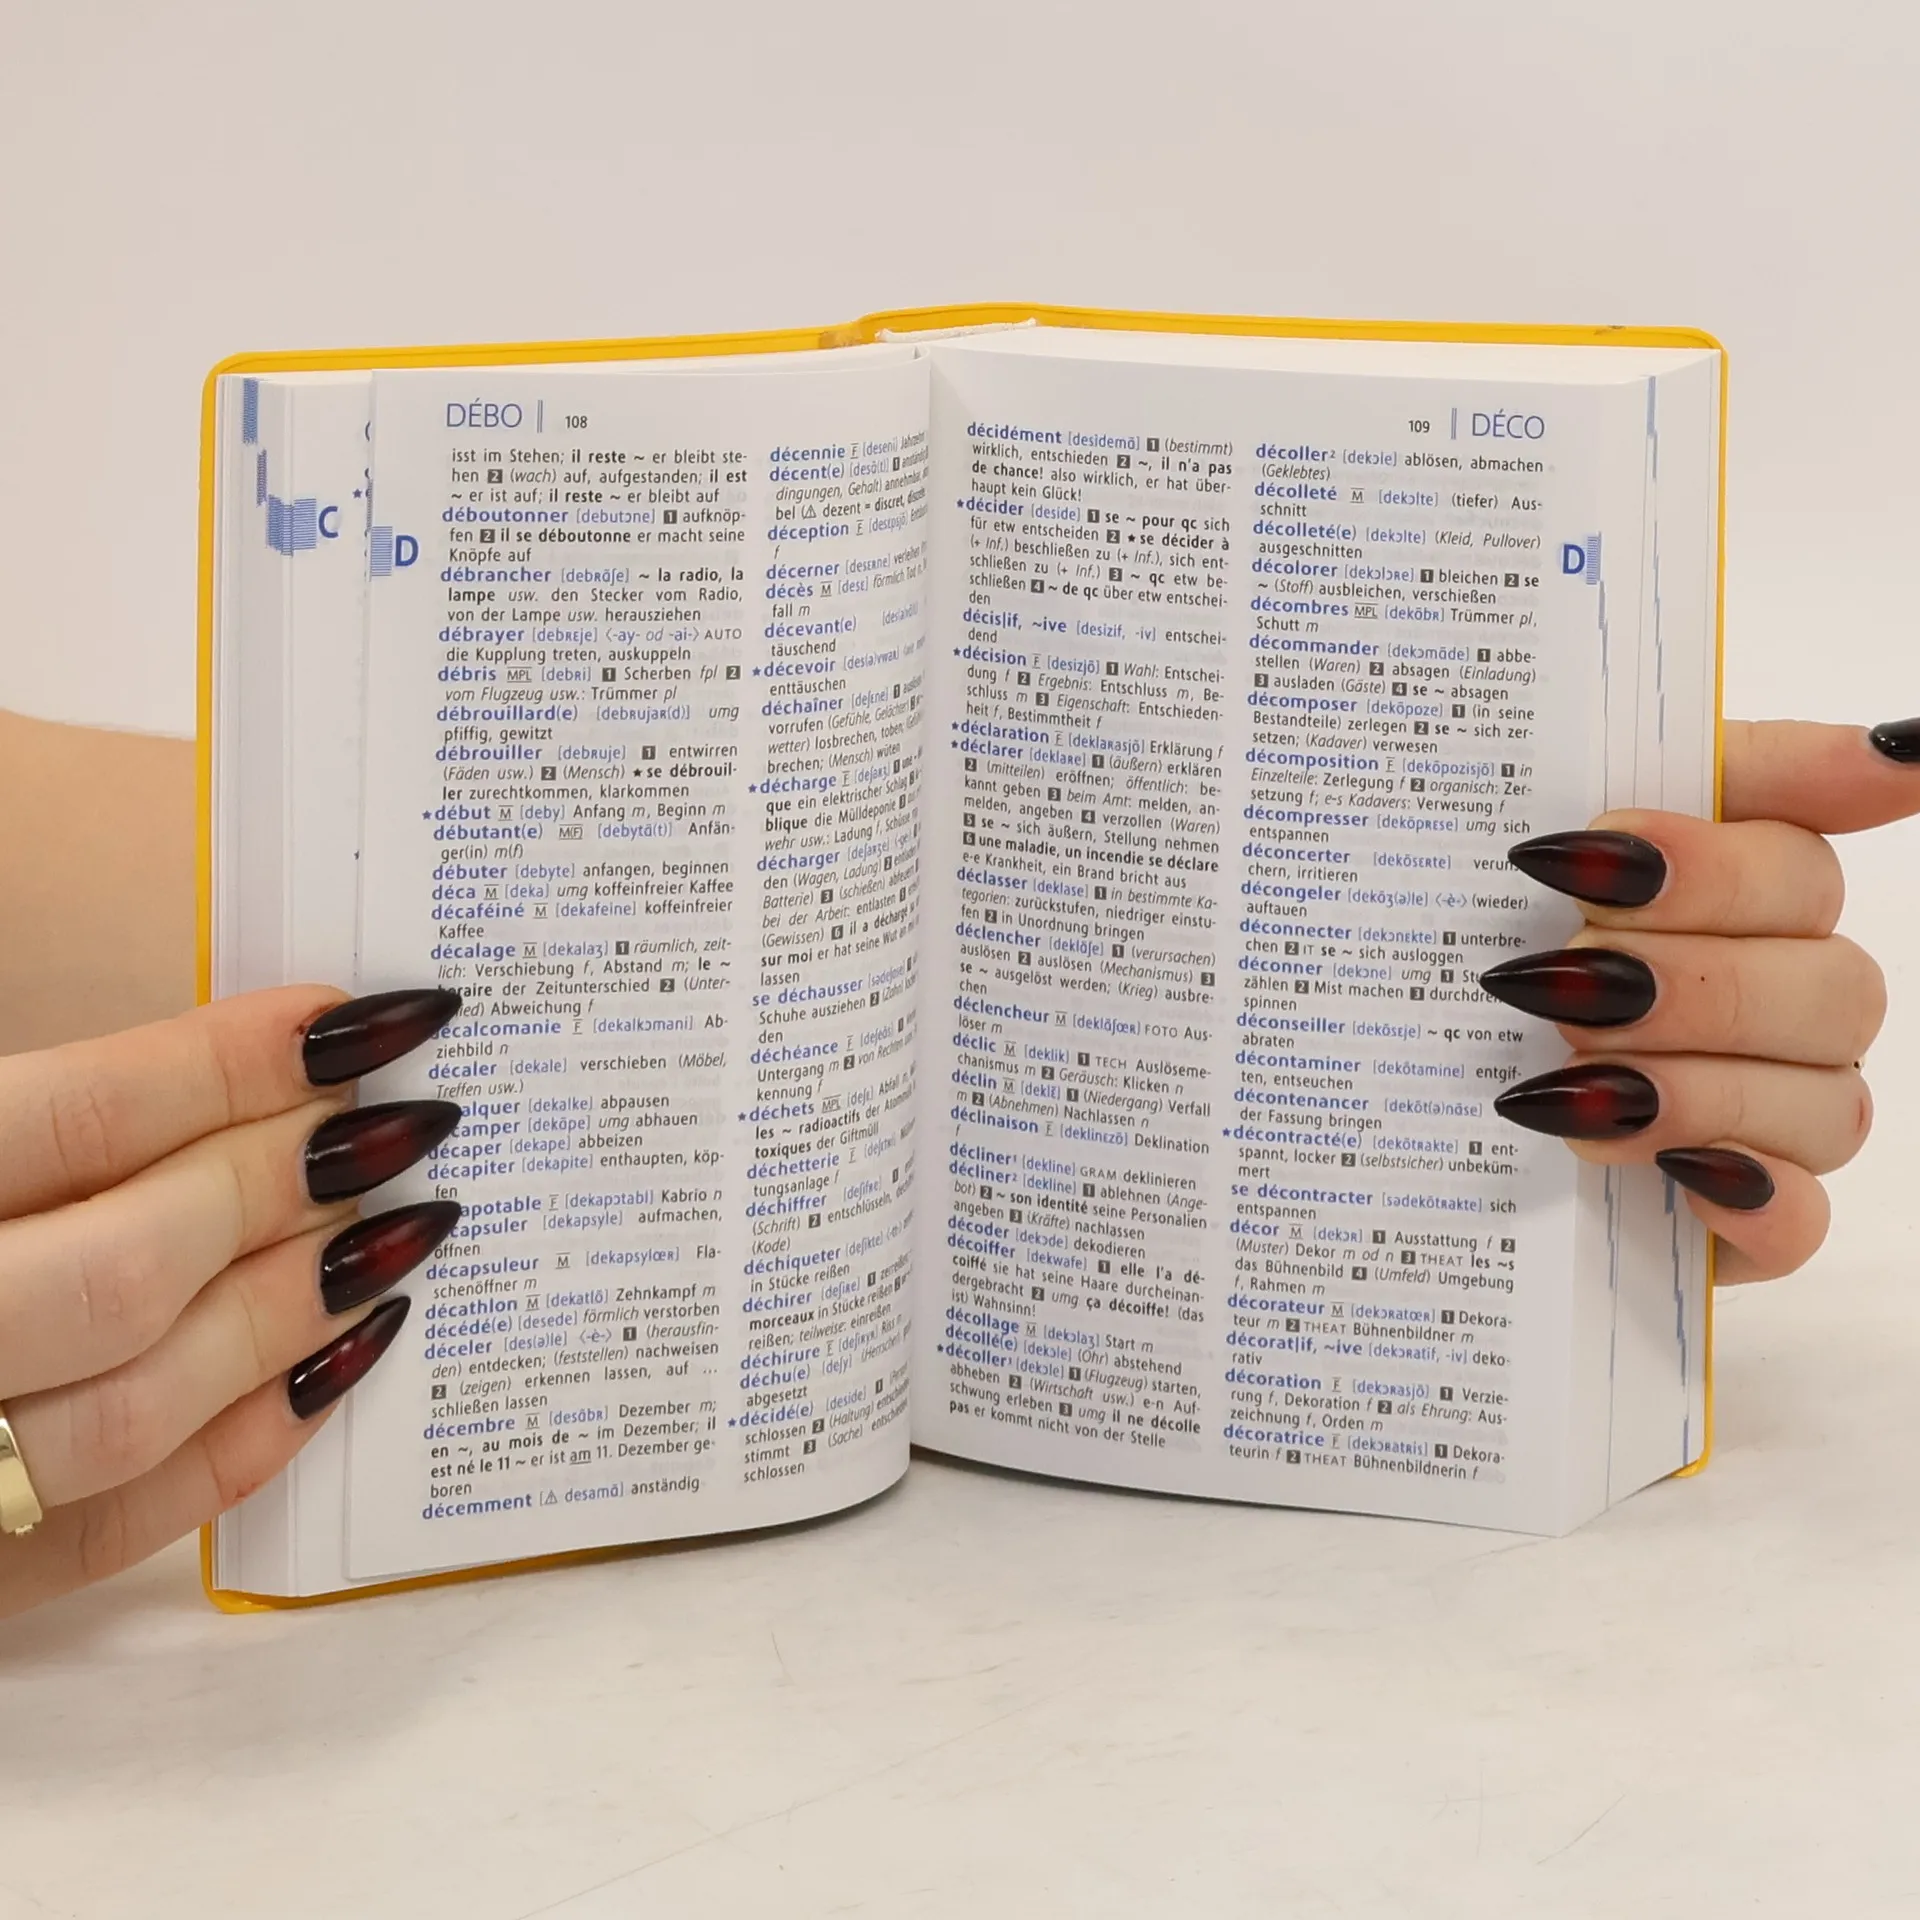 DÉBO 108
isst im Stehen; il reste ~ er bleibt ste-
hen 2 (wach) auf, aufgestanden; il est
~ er ist auf; il reste ~ er bleibt auf
déboutonner [debutɔne] 1 aufknöp-
fen 2 il se déboutonne er macht seine
Knöpfe auf
débrancher [debʀɑ̃ʃe] ~ la radio, la
lampe usw. den Stecker vom Radio,
von der Lampe usw. herausziehen
débrayer [debʀɛje] ‹-ay- od -ai-› AUTO
die Kupplung treten, auskuppeln
débris MPL [debʀi] 1 Scherben fpl 2
vom Flugzeug usw.: Trümmer pl
débrouillard(e) [debʀujaʀ(d)] umg
pfiffig, gewitzt
débrouiller [debʀuje] 1 entwirren
(Fäden usw.) 2 (Mensch) ★se débrouil-
ler zurechtkommen, klarkommen
★début M [deby] Anfang m, Beginn m
débutant(e) M(F) [debytɑ̃(t)] Anfän-
ger(in) m(f)
débuter [debyte] anfangen, beginnen
déca M [deka] umg koffeinfreier Kaffee
décaféiné M [dekafeine] koffeinfreier
Kaffee
décalage M [dekalaʒ] 1 räumlich, zeit-
lich: Verschiebung f, Abstand m; le ~
horaire der Zeitunterschied 2 (Unter-
Abweichung f
décalcomanie F [dekalkɔmani] Ab-
ziehbild n
décaler [dekale] verschieben (Möbel,
Treffen usw.)
[dekalke] abpausen
[dekɑ̃pe] umg abhauen
décaper [dekape] abbeizen
décapiter [dekapite] enthaupten, köp-
fen
F [dekapɔtabl] Kabrio n
[dekapsyle] aufmachen,
öffnen
décapsuleur M [dekapsylœʀ] Fla-
schenöffner m
décathlon M [dekatlɔ̃] Zehnkampf m
décédé(e) [desede] förmlich verstorben
déceler [des(ə)le] ‹-è-› 1 (herausfin-
den) entdecken; (feststellen) nachweisen
2 (zeigen) erkennen lassen, auf ...
schließen lassen
décembre M [desɑ̃bʀ] Dezember m;
en ~, au mois de ~ im Dezember; il
est né le 11 ~ er ist am 11. Dezember ge-
boren
décemment [⚠ desamɑ̃] anständig
décennie F [deseni]
décent(e) [desɑ̃(t)] 1
dingungen, Gehalt)
bel (⚠ dezent = discret,
déception F [desɛpsjɔ̃]
f
décerner [desɛʀne]
décès M [desɛ] förmlich Tod m,
fall m
décevant(e)
täuschend
★décevoir [des(ə)vwaʀ]
enttäuschen
déchaîner [deʃɛne] 1
vorrufen (Gefühle, Gelächter) 2
wetter) losbrechen, toben;
brechen; (Mensch) wüten
★décharge F [deʃaʀʒ] 1
que ein elektrischer Schlag 2
blique die Mülldeponie 3
wehr usw.: Ladung f,
décharger [deʃaʀʒe]
den (Wagen, Ladung) 2
Batterie) 3 (schießen)
bei der Arbeit: entlasten
(Gewissen) 6 il a déchargé
sur moi er hat seine Wut an
lassen
se déchausser [sədeʃose] 1
Schuhe ausziehen 2 (Zahn)
den
déchéance F [deʃeɑ̃s] 1
Untergang m 2 von Rechten
kennung f
★déchets MPL [deʃɛ] Abfall m,
les ~ radioactifs der Atommüll
toxiques der Giftmüll
déchetterie F [deʃɛtʀi]
tungsanlage f
déchiffrer [deʃifʀe] 1
(Schrift) 2 entschlüsseln,
(Kode)
déchiqueter [deʃikte]
in Stücke reißen
déchirer [deʃiʀe] 1 zerreißen
morceaux in Stücke reißen 2
reißen; teilweise: einreißen
déchirure F [deʃiʀyʀ] Riss m
déchu(e) [deʃy] (Herrscher)
abgesetzt
★décidé(e) [deside] 1
schlossen 2 (Haltung)
stimmt 3 (Sache)
schlossen
109 DÉCO
décidément [desidemɑ̃] 1 (bestimmt)
wirklich, entschieden 2 ~, il n'a pas
de chance! also wirklich, er hat über-
haupt kein Glück!
★décider [deside] 1 se ~ pour qc sich
für etw entscheiden 2 ★se décider à
(+ Inf.) beschließen zu (+ Inf.), sich ent-
schließen zu (+ Inf.) 3 ~ qc etw be-
schließen 4 ~ de qc über etw entschei-
den
décis|if, ~ive [desizif, -iv] entschei-
dend
★décision F [desizjɔ̃] 1 Wahl: Entschei-
dung f 2 Ergebnis: Entschluss m, Be-
schluss m 3 Eigenschaft: Entschieden-
heit f, Bestimmtheit f
★déclaration F [deklaʀasjɔ̃] Erklärung f
★déclarer [deklaʀe] 1 (äußern) erklären
2 (mitteilen) eröffnen; öffentlich: be-
kannt geben 3 beim Amt: melden, an-
melden, angeben 4 verzollen (Waren)
5 se ~ sich äußern, Stellung nehmen
6 une maladie, un incendie se déclare
e-e Krankheit, ein Brand bricht aus
déclasser [deklase] 1 in bestimmte Ka-
tegorien: zurückstufen, niedriger einstu-
fen 2 in Unordnung bringen
déclencher [deklɑ̃ʃe] 1 (verursachen)
auslösen 2 auslösen (Mechanismus) 3
se ~ ausgelöst werden; (Krieg) ausbre-
chen
déclencheur M [deklɑ̃ʃœʀ] FOTO Aus-
löser m
déclic M [deklik] 1 TECH Auslöseme-
chanismus m 2 Geräusch: Klicken n
déclin M [deklɛ̃] 1 (Niedergang) Verfall
m 2 (Abnehmen) Nachlassen n
déclinaison F [deklinɛzɔ̃] Deklination
f
décliner¹ [dekline] GRAM deklinieren
décliner² [dekline] 1 ablehnen (Ange-
bot) 2 ~ son identité seine Personalien
angeben 3 (Kräfte) nachlassen
décoder [dekɔde] dekodieren
décoiffer [dekwafe] 1 elle l'a dé-
coiffé sie hat seine Haare durcheinan-
dergebracht 2 umg ça décoiffe! (das
ist) Wahnsinn!
décollage M [dekɔlaʒ] Start m
décollé(e) [dekɔle] (Ohr) abstehend
★décoller¹ [dekɔle] 1 (Flugzeug) starten,
abheben 2 (Wirtschaft usw.) e-n Auf-
schwung erleben 3 umg il ne décolle
pas er kommt nicht von der Stelle
décoller² [dekɔle] ablösen, abmachen
(Geklebtes)
décolleté M [dekɔlte] (tiefer) Aus-
schnitt
décolleté(e) [dekɔlte] (Kleid, Pullover)
ausgeschnitten
décolorer [dekɔlɔʀe] 1 bleichen 2 se
~ (Stoff) ausbleichen, verschießen
décombres MPL [dekɔ̃bʀ] Trümmer pl,
Schutt m
décommander [dekɔmɑ̃de] 1 abbe-
stellen (Waren) 2 absagen (Einladung)
3 ausladen (Gäste) 4 se ~ absagen
décomposer [dekɔ̃poze] 1 (in seine
Bestandteile) zerlegen 2 se ~ sich zer-
setzen; (Kadaver) verwesen
décomposition F [dekɔ̃pozisjɔ̃] 1 in
Einzelteile: Zerlegung f 2 organisch: Zer-
setzung f; e-s Kadavers: Verwesung f
décompresser [dekɔ̃pʀɛse] umg sich
entspannen
déconcerter [dekɔ̃sɛʀte]
chern, irritieren
décongeler [dekɔ̃ʒ(ə)le] ‹-è-› (wieder)
auftauen
déconnecter [dekɔnɛkte] 1 unterbre-
chen 2 IT se ~ sich ausloggen
déconner [dekɔne] umg 1
zählen 2 Mist machen 3
spinnen
déconseiller [dekɔ̃sɛje] ~ qc von etw
abraten
décontaminer [dekɔ̃tamine] entgif-
ten, entseuchen
décontenancer [dekɔ̃t(ə)nɑ̃se] aus
der Fassung bringen
★décontracté(e) [dekɔ̃tʀakte] 1 ent-
spannt, locker 2 (selbstsicher) unbeküm-
mert
se décontracter [sədekɔ̃tʀakte] sich
entspannen
décor M [dekɔʀ] 1 Ausstattung f 2
(Muster) Dekor m od n 3 THEAT les ~s
das Bühnenbild 4 (Umfeld) Umgebung
f, Rahmen m
décorateur M [dekɔʀatœʀ] 1 Dekora-
teur m 2 THEAT Bühnenbildner m
décorat|if, ~ive [dekɔʀatif, -iv] deko-
rativ
décoration F [dekɔʀasjɔ̃] 1 Verzie-
rung f, Dekoration f 2 als Ehrung: Aus-
zeichnung f, Orden m
décoratrice F [dekɔʀatʀis] 1 Dekora-
teurin f 2 THEAT Bühnenbildnerin f
C
D
D